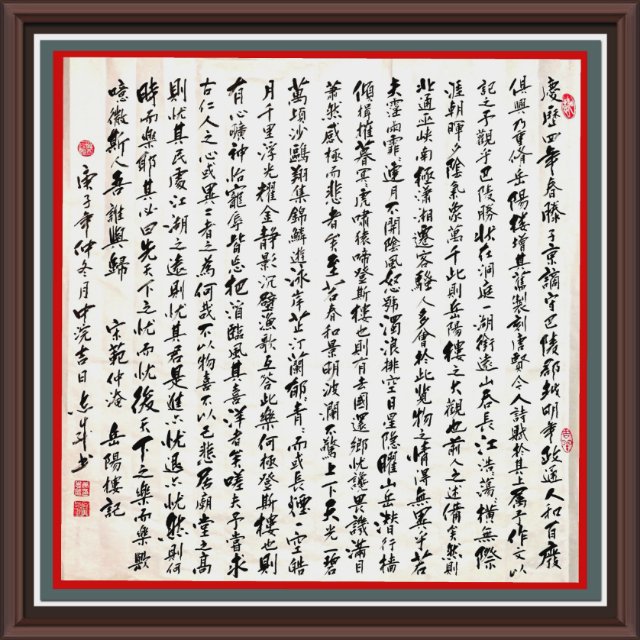 慶歷四年春滕子京謫守巴陵郡越明年政通人和百廢
俱興乃重脩岳陽樓增其舊製刻唐賢今人詩賦於其上属予作文以
記之予觀乎巴陵勝狀在洞庭一湖銜遠山吞長江浩蕩橫無際
涯朝暉夕陰氣象萬千此則岳陽樓之大觀也前人之述備矣然則
北通巫峽南極瀟湘遷客騷人多會於此覽物之情得無異乎若
夫霪雨霏〻連月不開陰風怒號濁浪排空日星隱曜山岳潛行檣
傾楫摧暮冥〻虎嘯猿啼登斯樓也則有去國還鄉忧讒畏譏滿目
蕭然感極而悲者矣至若春和景明波瀾不驚上下天光一碧
萬頃沙鷗翔集錦鱗游泳岸芷汀蘭郁〻青〻而或長煙一空皓
月千里浮光耀金静影沉璧漁歌互答此樂何極登斯樓也則
有心曠神怡寵辱皆忘把酒臨風其喜洋〻者矣嗟夫予嘗求
古仁人之心或異二者之為何哉不以物喜不以己悲居廟堂之高
則忧其民處江湖之遠則忧其君是進亦忧退亦忧然則何
時而樂耶其必曰先天下之忧而忧後天下之樂而樂歟
噫微斯人吾誰與歸 宋範仲淹 岳陽樓記
庚子年仲冬月中浣吉日 书